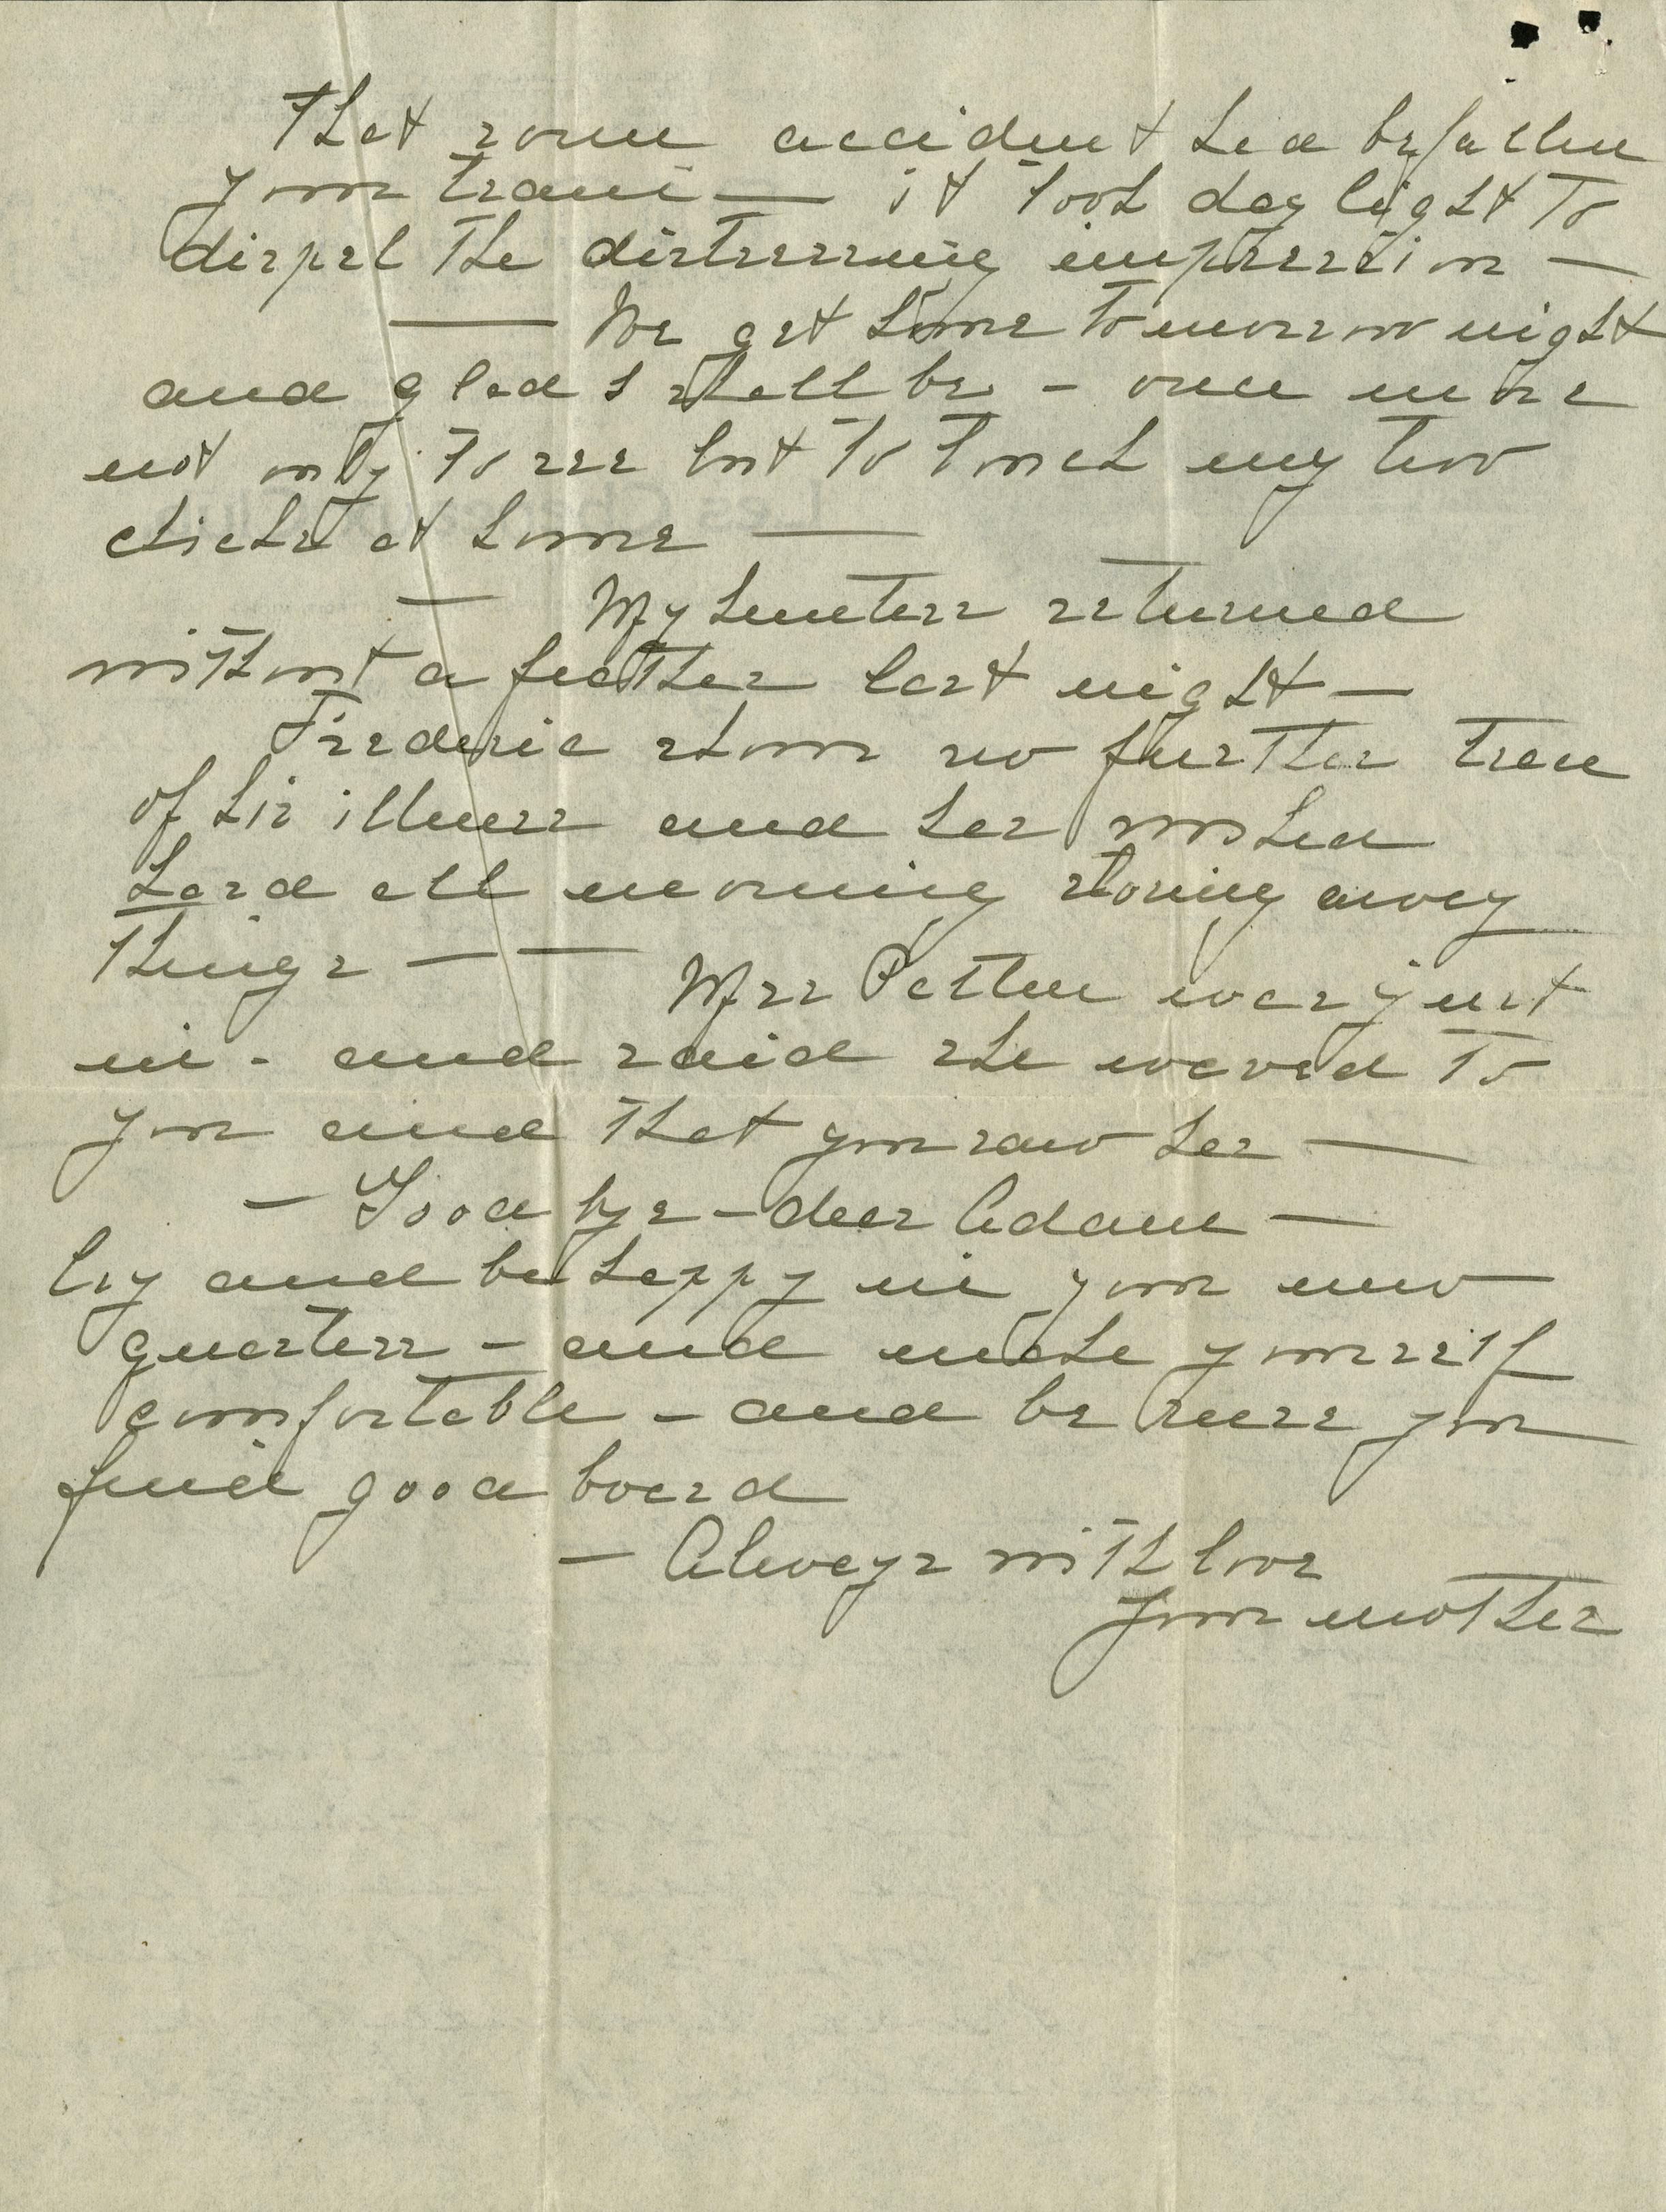 That some accident had befallen
your train — it took daylight to
dispel the distressing impression —
— We get home tomorrow night
and glad I shall be - once more
not only to see but to touch my two
chicks at home —
— My hunters returned
without a feather last night —
Frederic shows no further trace
of his illness and has worked
hard all morning storing away
things — —
Mrs Patten was just
in - and said she waved to
you and that you saw her —
— Good bye - dear Adam —
try and be happy in your new
quarters - and make yourself
comfortable - and be sure you
find good board
— Always with love
Your mother